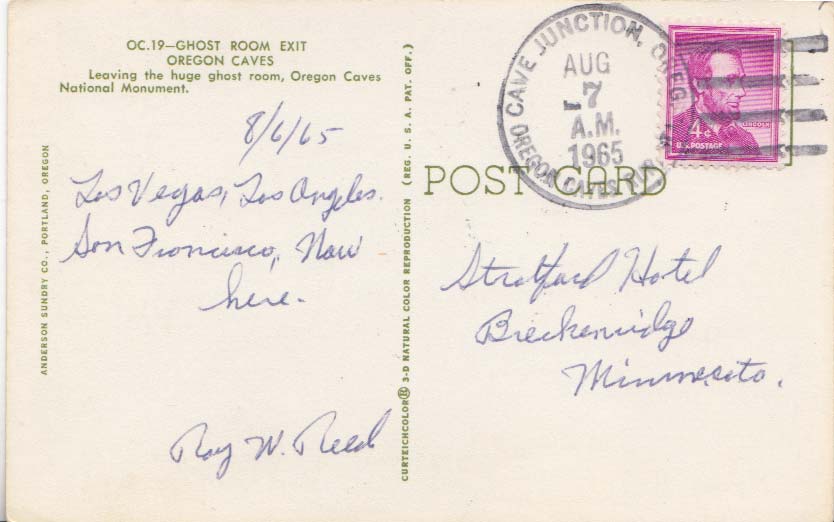 OC.19—GHOST ROOM EXIT
OREGON CAVES
Leaving the huge ghost room, Oregon Caves
National Monument.
8/6/65
Las Vegas, Los Angeles.
San Francisco, Now
here.
Roy W. Reed
ANDERSON SUNDRY CO., PORTLAND, OREGON
CURTEICHCOLOR® 3-D NATURAL COLOR REPRODUCTION (REG. U. S. A. PAT. OFF.)
POST CARD
CAVE JUNCTION, OREG
AUG
7
A.M.
1965
OREGON CAVES RUR.
4¢
LINCOLN
U.S. POSTAGE
Stratford Hotel
Breckenridge
Minnesota.